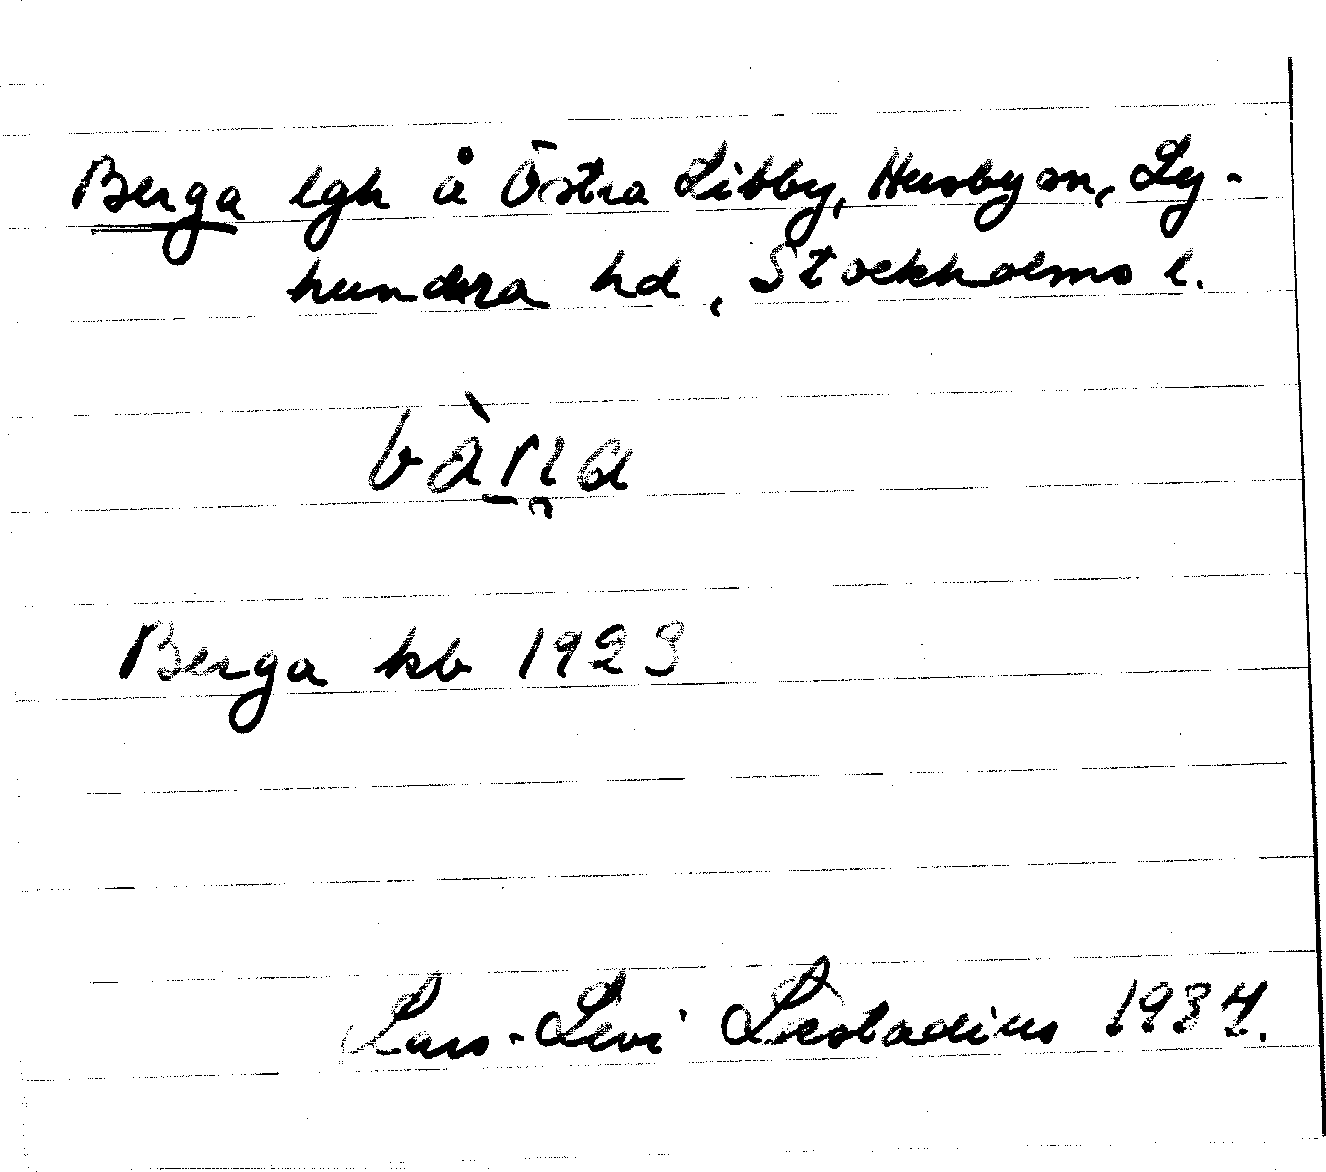 Berga lgh å Östra Libby, Husby sn, Ly-
hundra hd, Stockholms l.
Berga kb 1923
Lars-Levi Læstadius 1934.